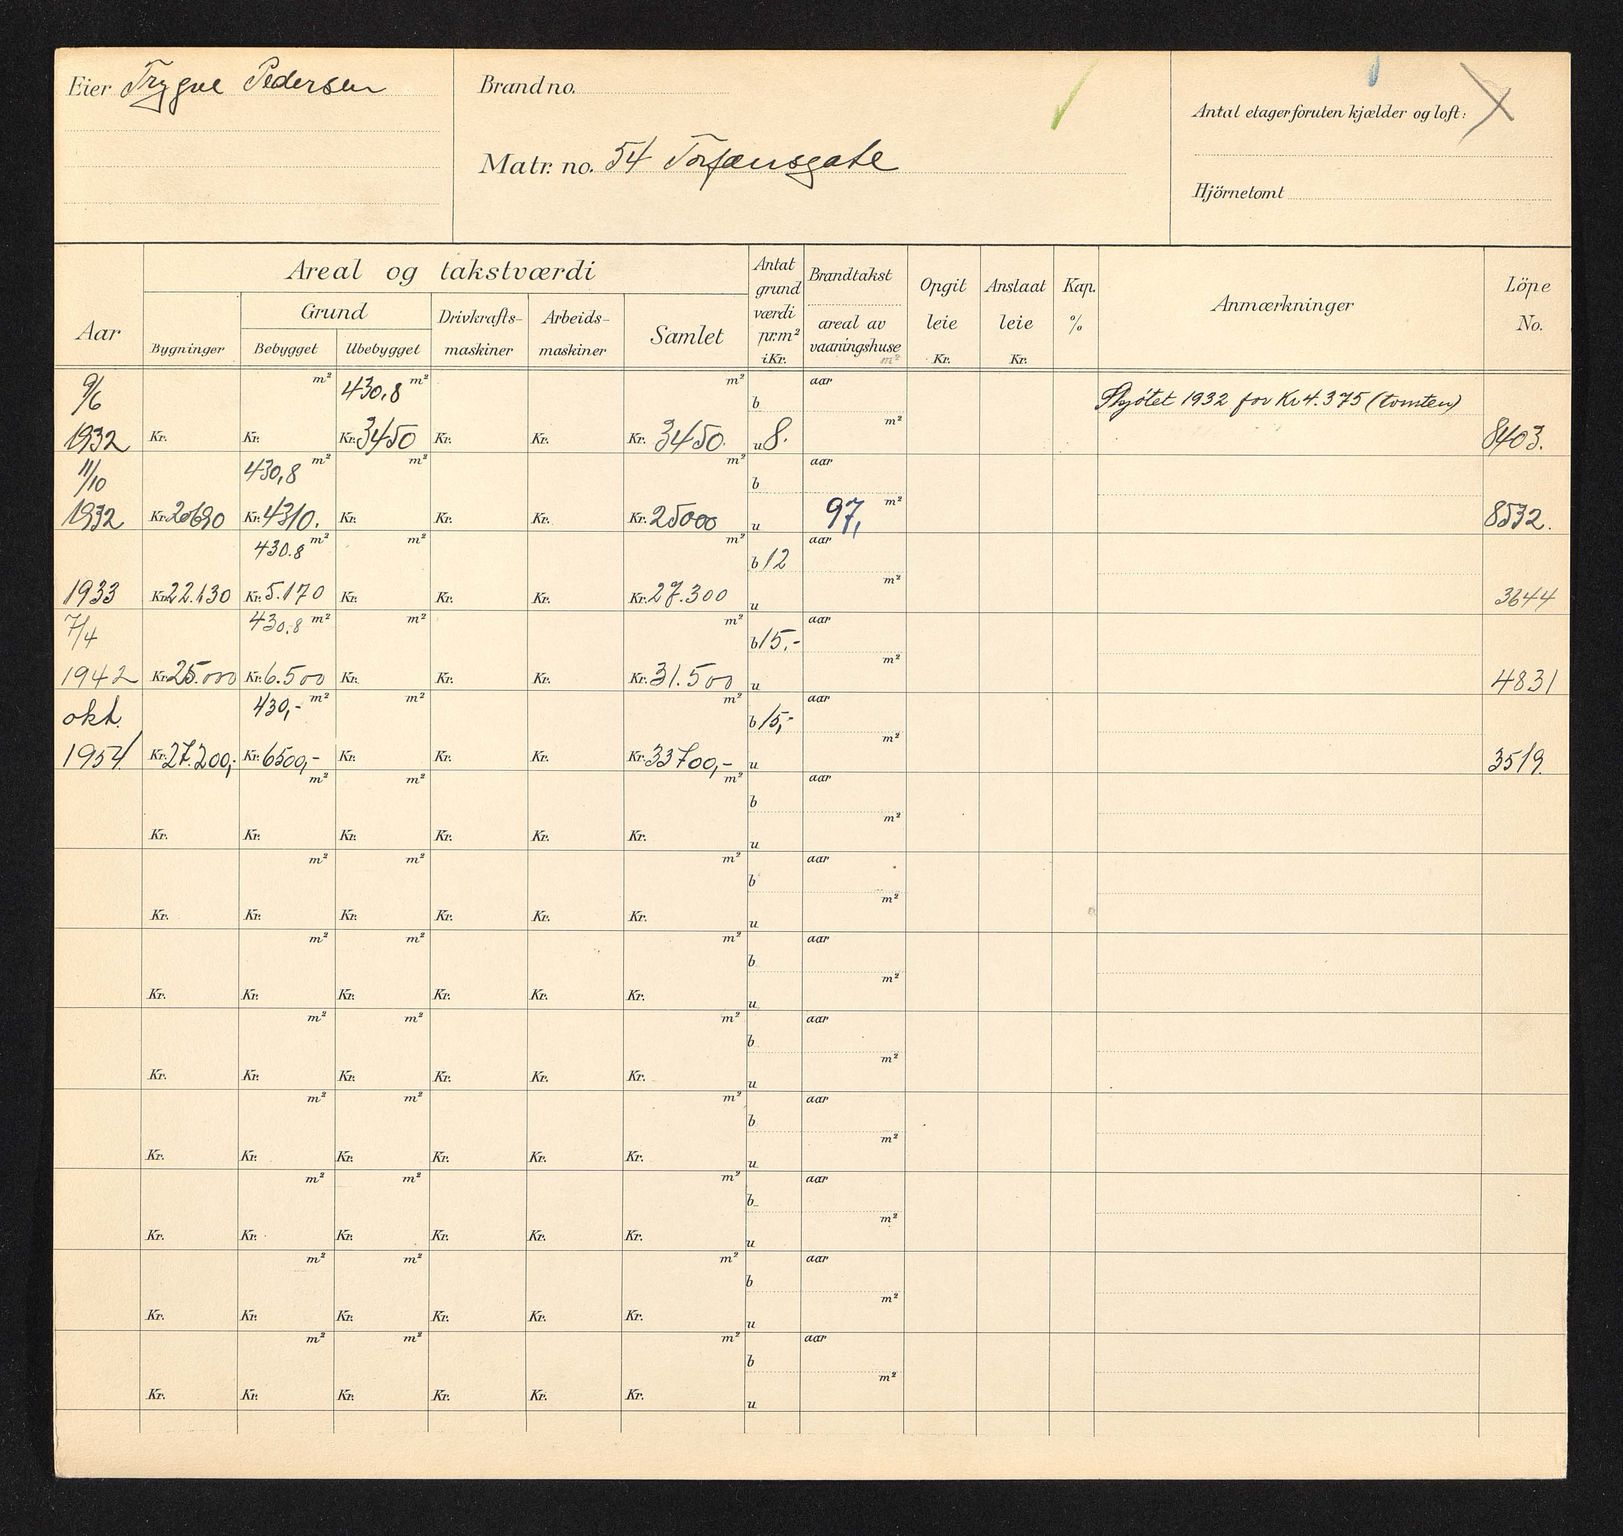 Eier Trygve Pedersen
Brand no.
Matr. no. 54 Torfæusgate
Antal etager foruten kjælder og loft:
Hjörnetomt
Aar
Areal og takstværdi
Bygninger
Grund
Bebygget
Ubebygget
Drivkrafts-
maskiner
Arbeids-
maskiner
Samlet
Antat
grund
værdi
pr. m²
i Kr.
Brandtakst
areal av
vaaningshuse
m²
Opgit
leie
Kr.
Anslaat
leie
Kr.
Kap.
%
Anmærkninger
Löpe
No.
9/6 m² 430,8 m² m² b aar Skjötet 1932 for Kr 4.375 (tomten)
1932 Kr. Kr. Kr. 3450 Kr. Kr. Kr. 3450. u 8. m² 8403.
11/10 430,8 m² m² m² b aar
1932 Kr. 20690 Kr. 4310. Kr. Kr. Kr. Kr. 25000 u 97, m² 8532.
430.8 m² m² m² b 12 aar
1933 Kr. 22.130 Kr. 5.170 Kr. Kr. Kr. Kr. 27.300 u m² 3644
7/4 430.8 m² m² m² b 15.- aar
1942 Kr. 25.000 Kr. 6.500 Kr. Kr. Kr. Kr. 31.500 u m² 4831
okt. 430,- m² m² m² b 15,- aar
1954 Kr. 27.200,- Kr. 6500,- Kr. Kr. Kr. Kr. 33700,- u m² 3519.
m² m² m² b aar
Kr. Kr. Kr. Kr. Kr. Kr. u m²
m² m² m² b aar
Kr. Kr. Kr. Kr. Kr. Kr. u m²
m² m² m² b aar
Kr. Kr. Kr. Kr. Kr. Kr. u m²
m² m² m² b aar
Kr. Kr. Kr. Kr. Kr. Kr. u m²
m² m² m² b aar
Kr. Kr. Kr. Kr. Kr. Kr. u m²
m² m² m² b aar
Kr. Kr. Kr. Kr. Kr. Kr. u m²
m² m² m² b aar
Kr. Kr. Kr. Kr. Kr. Kr. u m²
m² m² m² b aar
Kr. Kr. Kr. Kr. Kr. Kr. u m²